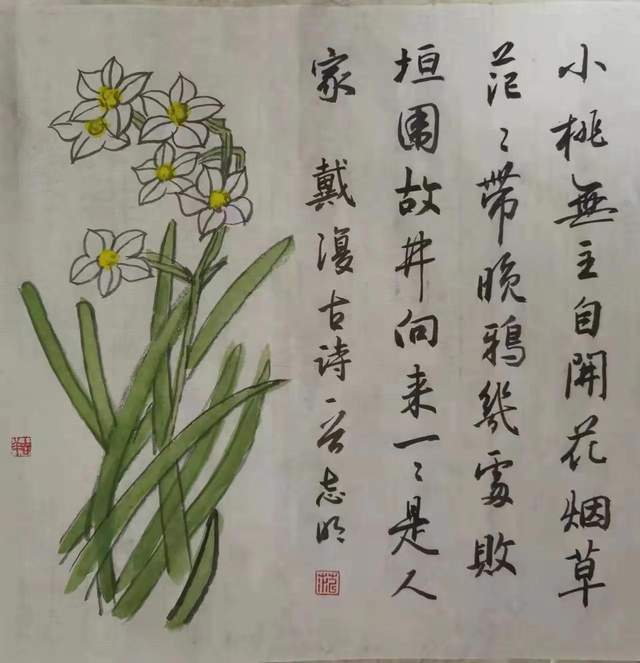 小桃無主自開花烟草
茫〻帶晚鴉幾處敗
垣圍故井向来一〻是人
家 戴復古诗一首志明